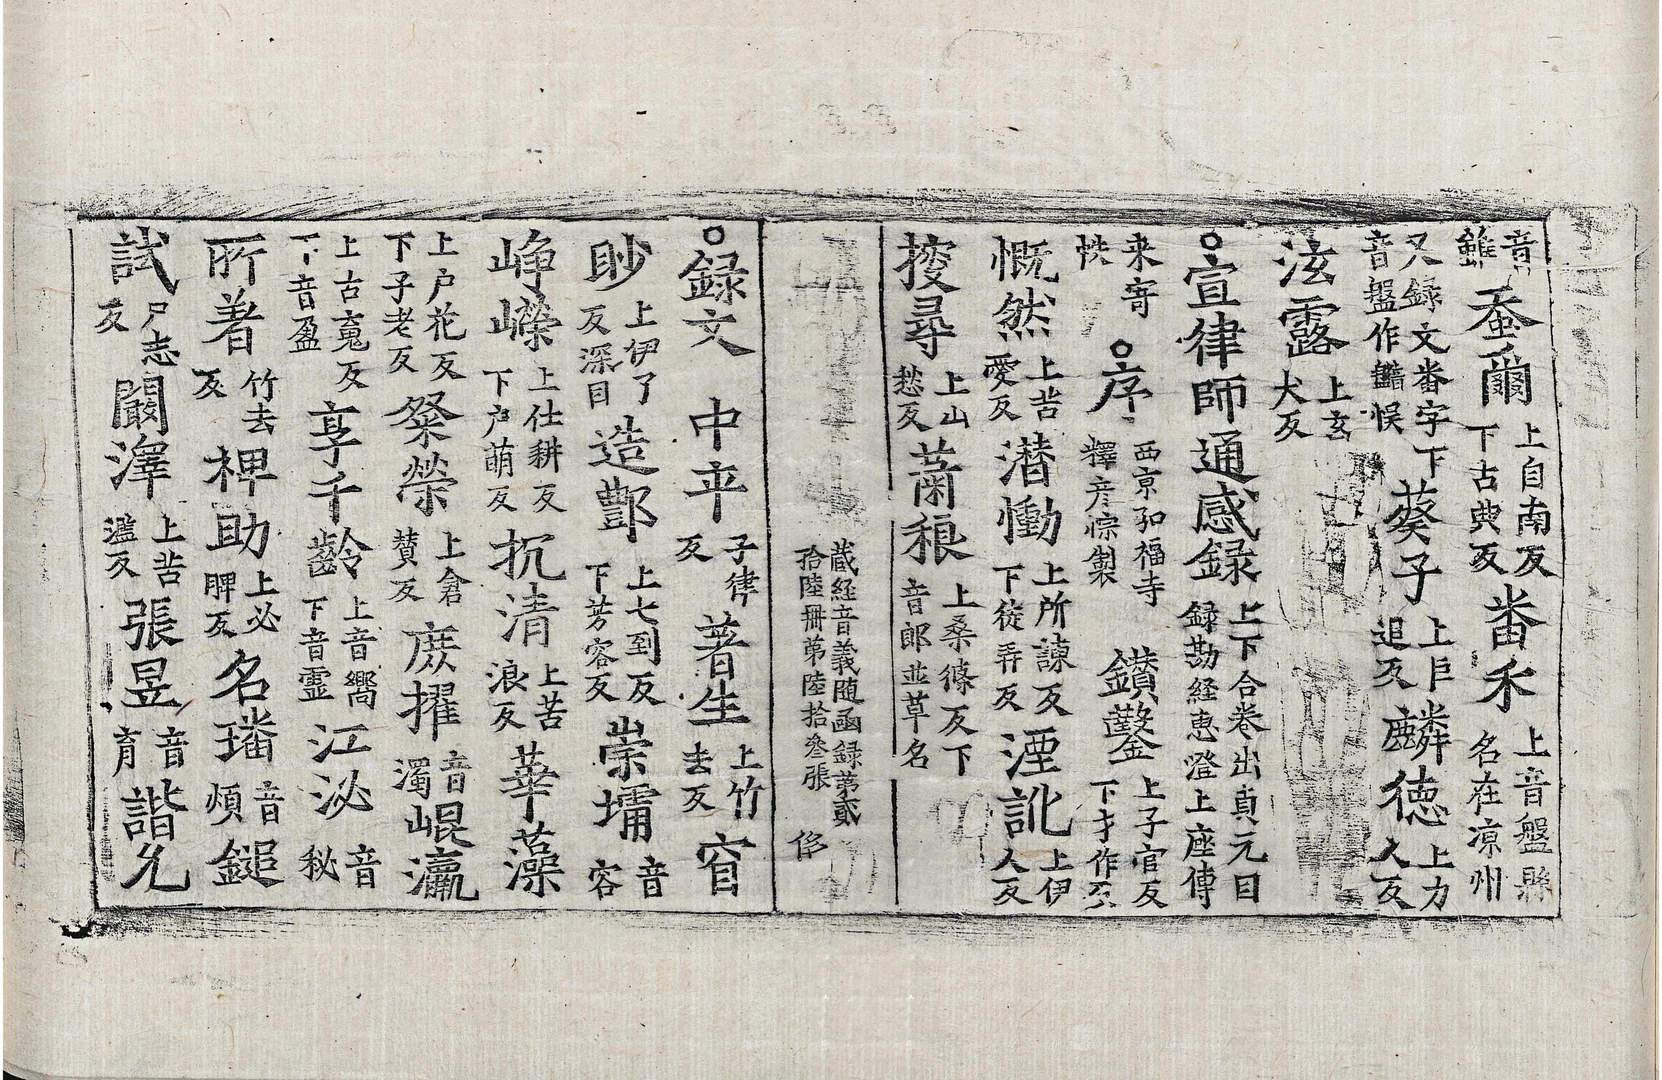 音雖蚕爾上自南反下古典反番禾上音盤縣名在凉州
又録文番字下音盤作䪻悞葵子上巨追反麟德上力人反
泫露上玄犬反
○宣律師通感録上下合卷出貞元目録勘経恵澄上座傳
来寄帙○序西亰弘福寺釋彦悰製鑚鑿上子官反下才作反
慨然上苦愛反潜慟上所諫反下徒弄反湮訛上伊人反
搜尋上山愁反蕳稂上桑條反下音郎並草名
蔵経音義随函録第貳拾陸冊苐陸拾叄張
○録文中平子律反著生上竹去反窅
眇上伊了反深目造酆上七到反下芳容反崇墉音容
崢嶸上仕耕反下户萌反抗清上苦浪反華藻
上户花反下子老反粲榮上倉賛反庻擢音濁崐瀛
上古䰟反下音盈享千齡上音嚮下音靈江泌音秘
所着竹去反裨助上必脾反名璠音煩鎚
試尸志反闞澤上苦濫反張昱音育諧允